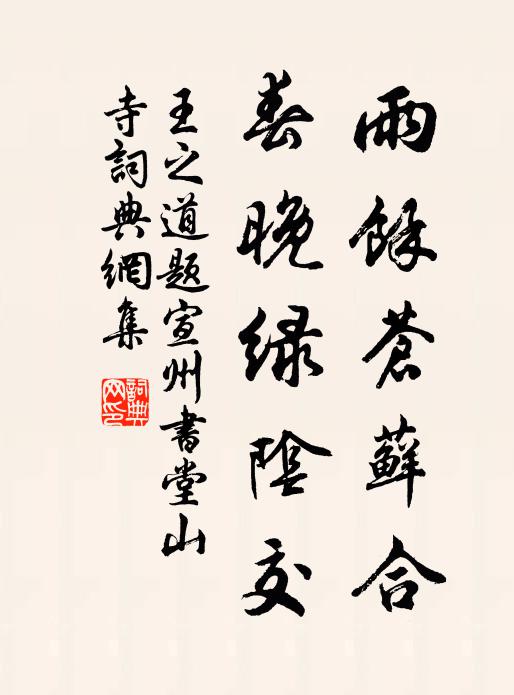 雨餘蒼蘚合
春晚綠陰交
王之道題宣州書堂山
寺詞典網集
詞典
网印